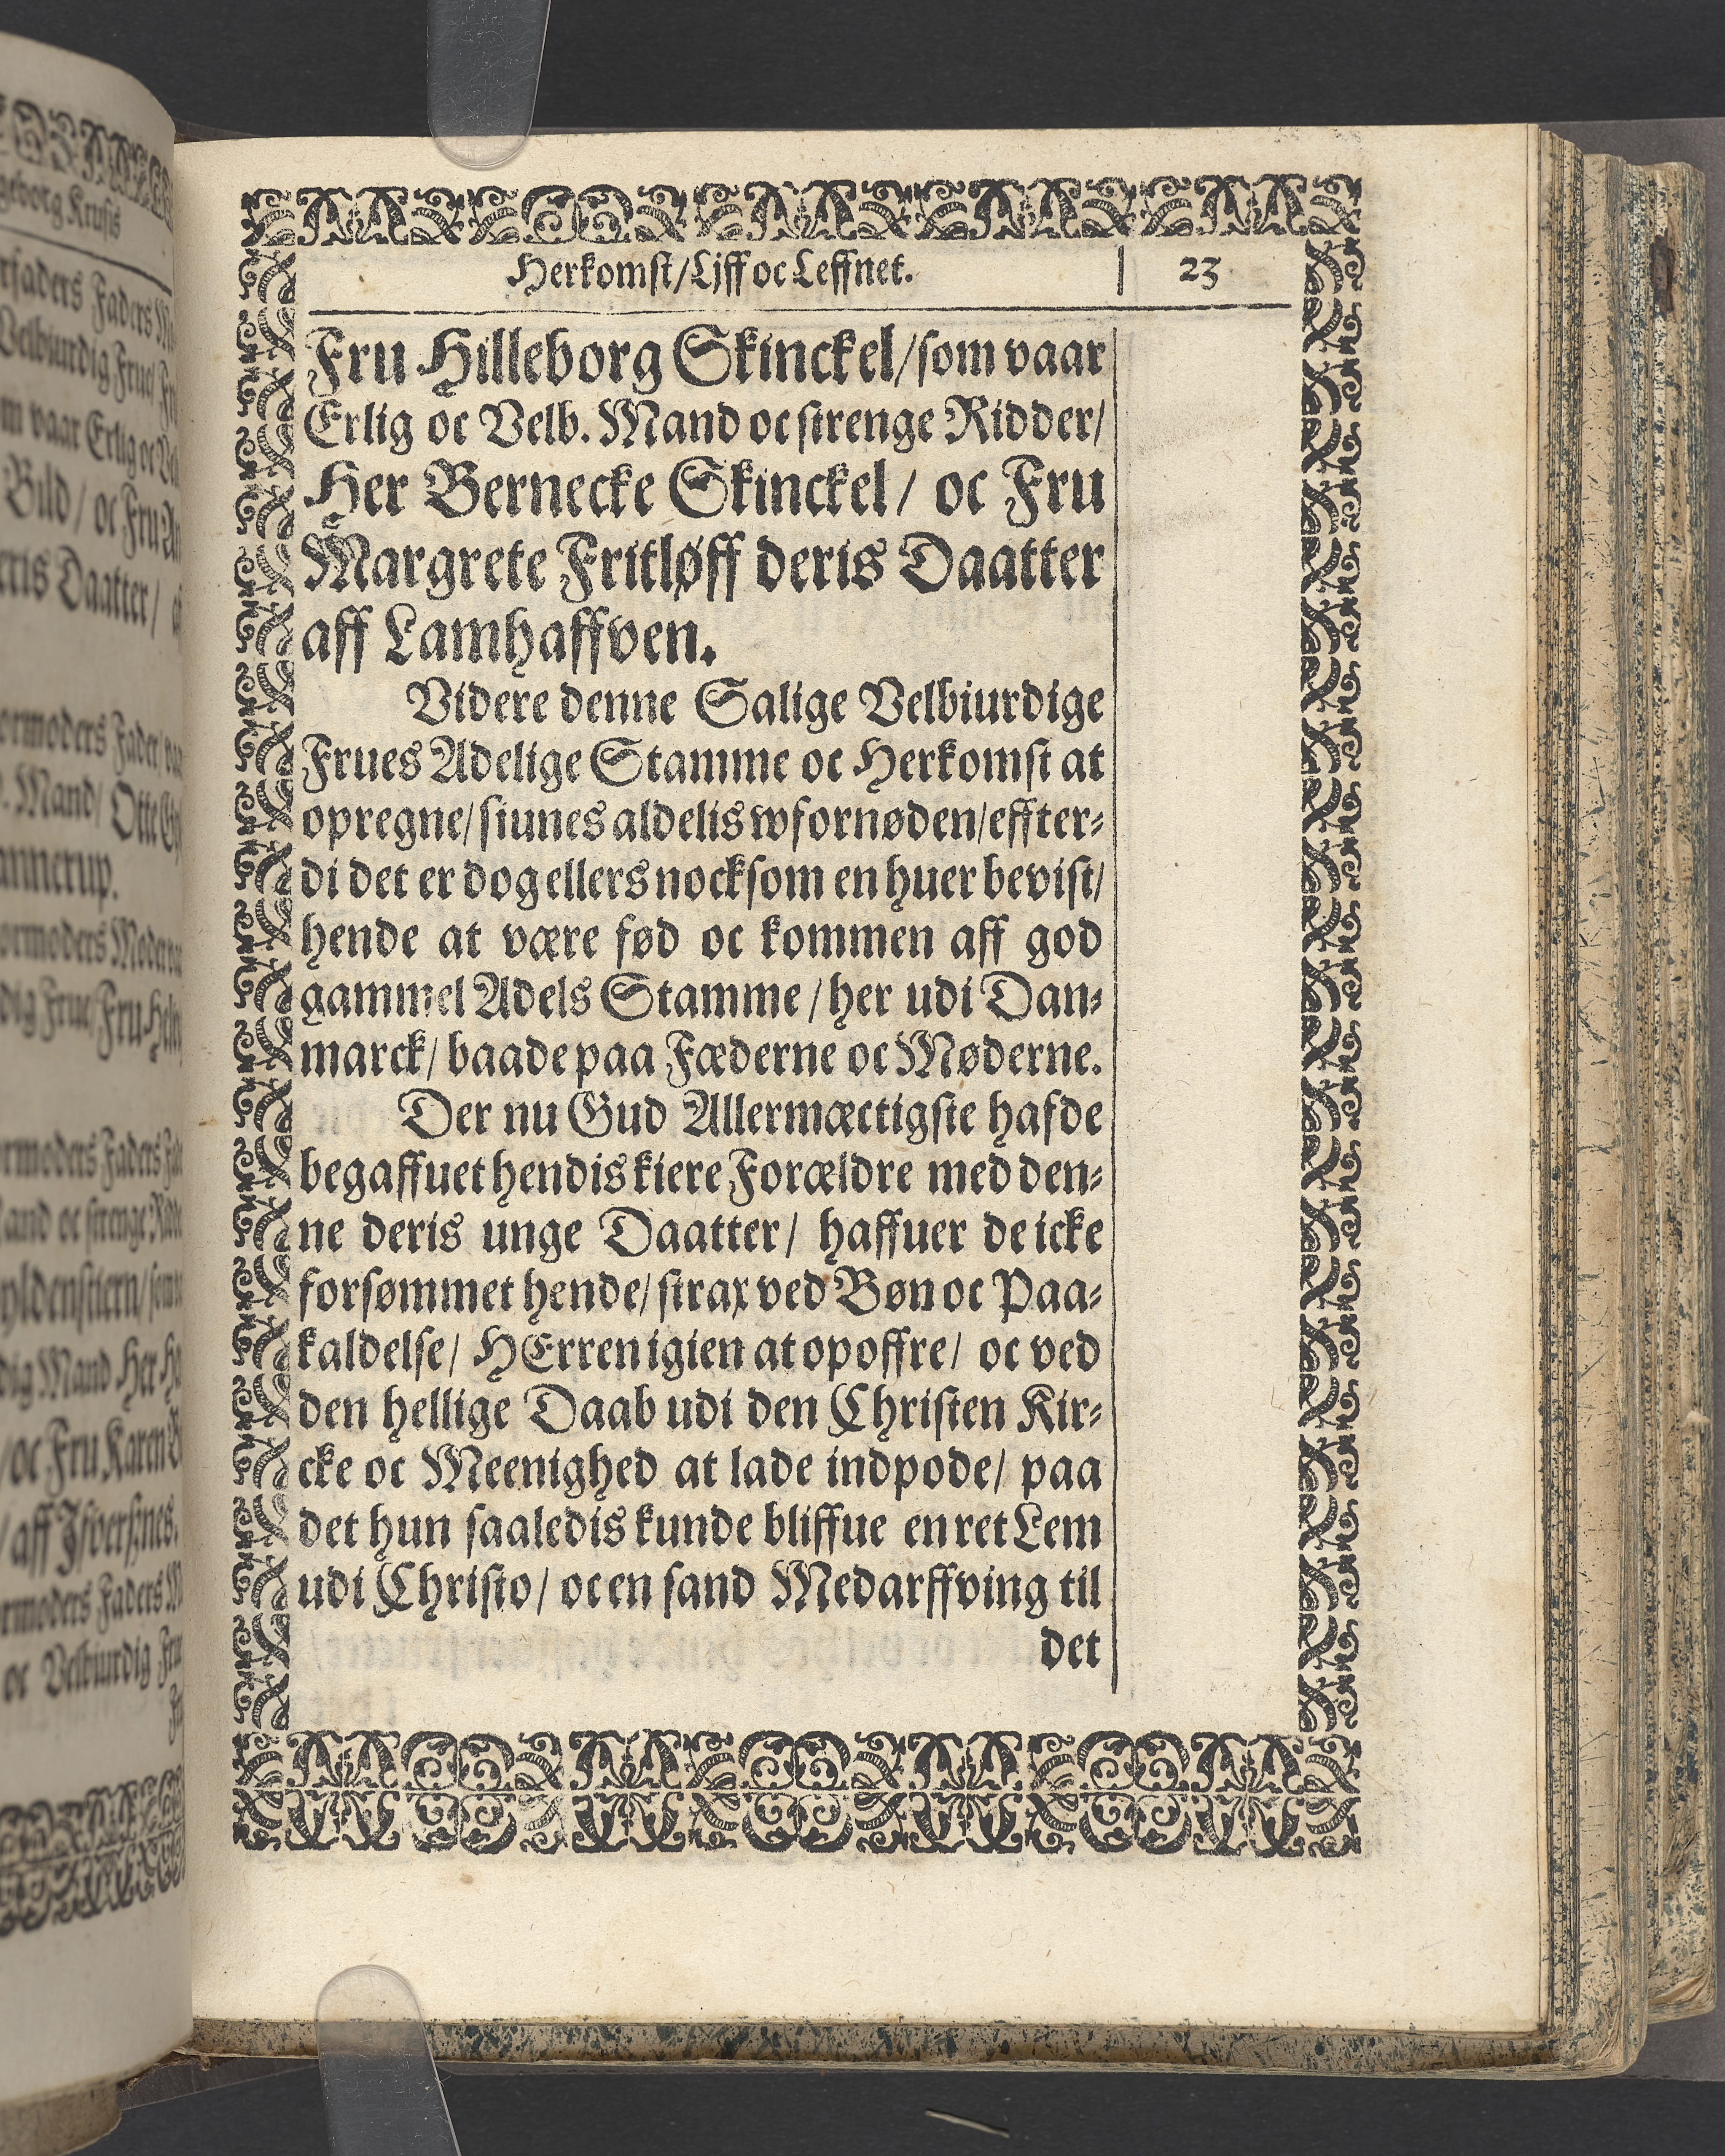 Herkomst/Lijff oc Leffnet. 23
Fru Hilleborg Skinckel/som vaar
Erlig oc Velb. Mand oc strenge Ridder/
Her Bernecke Skinckel/ oc Fru
Margrete Fritløff deris Daatter
aff Lamhaffven.
Videre denne Salige Velbiurdige
Frues Adelige Stamme oc Herkomst at
opregne/siunes aldelis wfornøden/effter-
di det er dog ellers nocksom en huer bevist/
hende at være fød oc kommen aff god
gammel Adels Stamme/her udi Dan-
marck/ baade paa Fæderne oc Møderne.
Der nu Gud Allermæctigste hafde
begaffuet hendis kiere Forældre med den-
ne deris unge Daatter/ haffuer de icke
forsømmet hende/strax ved Bøn oc Paa-
kaldelse/ HErren igien at opoffre/ oc ved
den hellige Daab udi den Christen Kir-
cke oc Meenighed at lade indpode/ paa
det hun saaledis kunde bliffue en ret Lem
udi Christo/ oc en sand Medarffving til
det